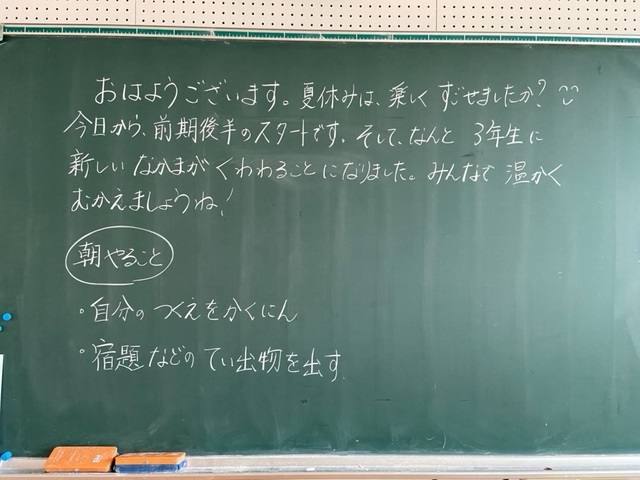 おはようございます。夏休みは、楽しく すごせましたか?
今日から、前期後半のスタートです。そして、なんと 3年生に
新しい なかまが くわわることに なりました。みんなで 温かく
むかえましょうね!
朝やること
・自分の つくえを かくにん
・宿題などの てい出物を出す